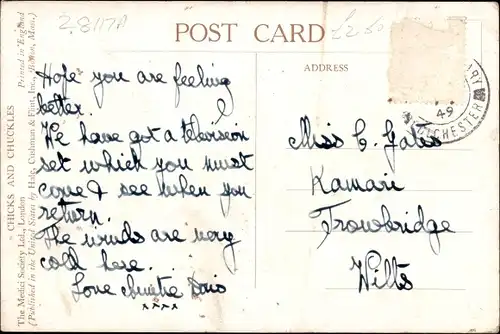 28117A
POST CARD
£2.50
ADDRESS
Hope you are feeling
better.
We have got a television
set which you must
come & see when you
return.
The winds are very
cold here.
Love Auntie Doris
xxxx
Miss C. Gates
Kamari
Trowbridge
Wilts
49
CHESTER
CHICKS AND CHUCKLES
The Medici Society Ltd., London
Printed in England
(Published in the United States by Hale, Cushman & Flint, Inc., Boston, Mass.)